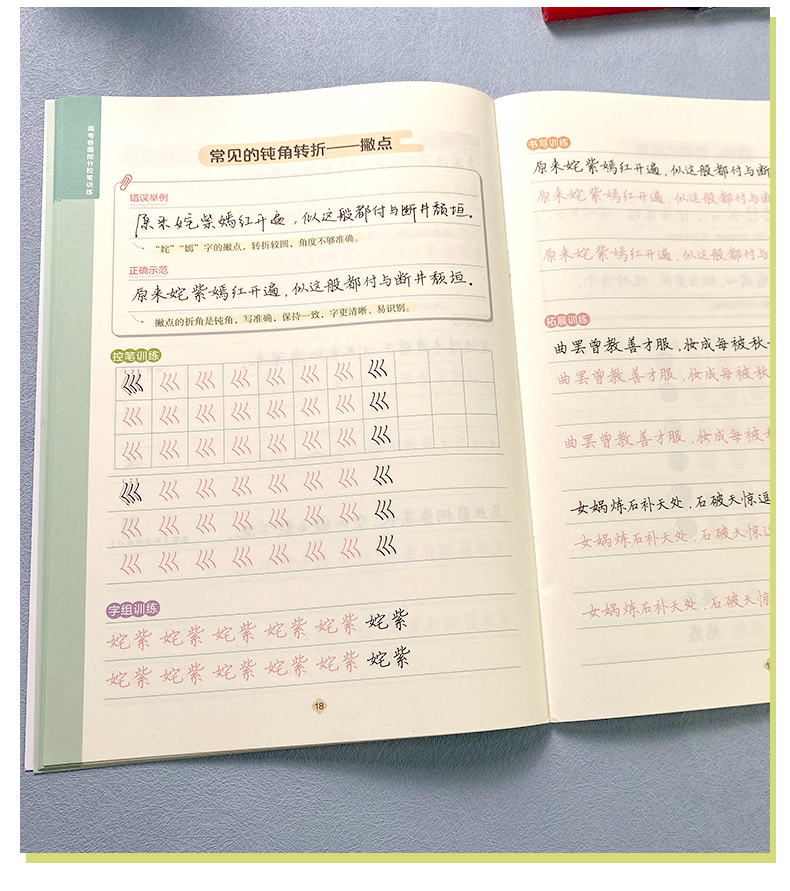 高考卷面加分控笔训练
常见的钝角转折——撇点
错误举例
原来姹紫嫣红开遍，似这般都付与断井颓垣。
“姹”“嫣”字的撇点，转折较圆，角度不够准确。
正确示范
原来姹紫嫣红开遍，似这般都付与断井颓垣。
撇点的折角是钝角，写准确，保持一致，字更清晰、易识别。
控笔训练
字组训练
姹紫 姹紫 姹紫 姹紫 姹紫 姹紫
姹紫 姹紫 姹紫 姹紫 姹紫 姹紫
18
书写训练
原来姹紫嫣红开遍，似这般都付与断
原来姹紫嫣红开遍，似这般都付与断
原来姹紫嫣红开遍，似这般都付与断
拓展训练
曲罢曾教善才服，妆成每被秋
曲罢曾教善才服，妆成每被秋
曲罢曾教善才服，妆成每被秋
女娲炼石补天处，石破天惊逗
女娲炼石补天处，石破天惊逗
女娲炼石补天处，石破天惊